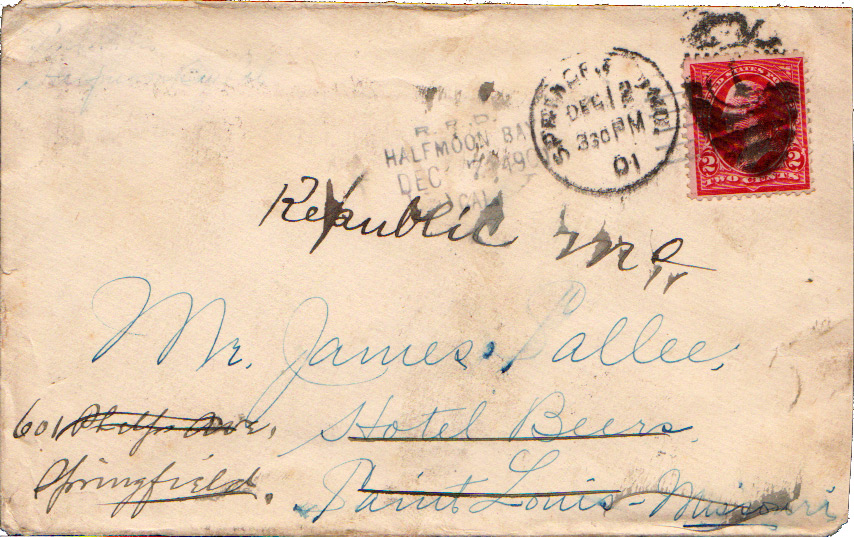 R.P.O.
HALFMOON BAY
DEC
CAL
SPRINGFIELD, MO.
DEC 12
330 PM
01
UNITED STATES POSTAGE
2 2
TWO CENTS
Republic Mo
Mr. James Pallee,
601 Phelps Ave,
Hotel Beers
Springfield.
Saint Louis - Missouri